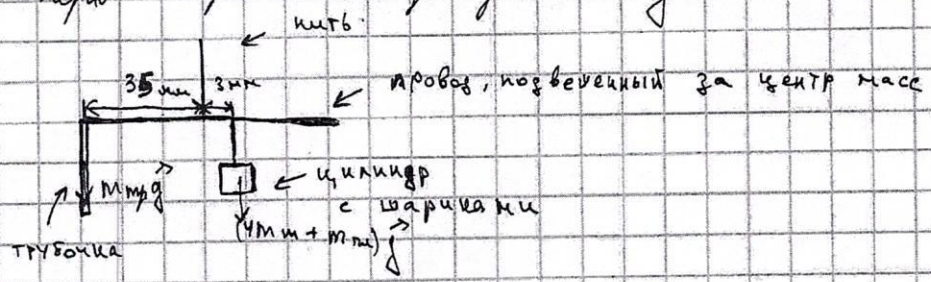 нить
35 мм 3 мм провод, подвешенный за центр масс
mтрg цилиндр
с шариками
(4mш + mпл)g
трубочка